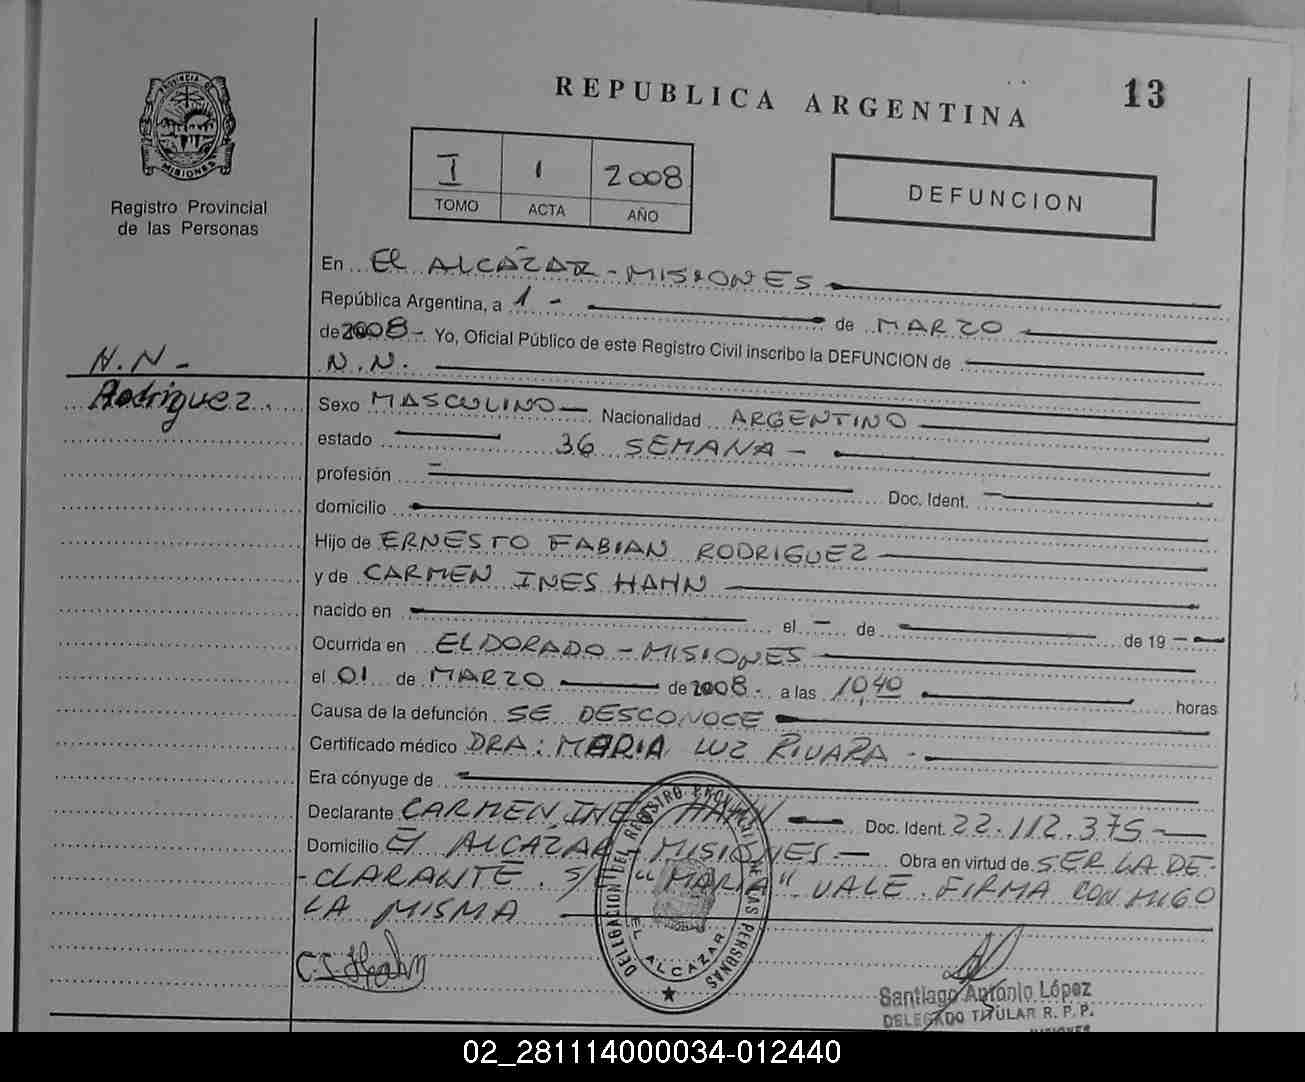 13
REPUBLICA ARGENTINA
PROVINCIA DE MISIONES
Registro Provincial
de las Personas
I 1 2008
TOMO ACTA AÑO
DEFUNCION
En El ALCAZAR - MISIONES
República Argentina, a 1 - de MARZO
de 2008 - Yo, Oficial Público de este Registro Civil inscribo la DEFUNCION de
N.N -
Rodriguez.
N.N.
Sexo MASCULINO - Nacionalidad ARGENTINO
estado 36 SEMANA -
profesión Doc. Ident.
domicilio
Hijo de ERNESTO FABIAN RODRIGUEZ
y de CARMEN INES HAHN
nacido en el - de de 19 -
Ocurrida en ELDORADO - MISIONES
el 01 de MARZO de 2008 - a las 10,40 horas
Causa de la defunción SE DESCONOCE
Certificado médico DRA: MARIA LUZ RIVARA -
Era cónyuge de
Declarante CARMEN INES HAHN Doc. Ident. 22.112.375 -
Domicilio El ALCAZAR - MISIONES - Obra en virtud de SER LA DE-
-CLARANTE. S/R "MARIA" VALE. FIRMA CONMIGO
LA MISMA
DELEGACION DEL REGISTRO PROVINCIAL DE LAS PERSONAS
EL ALCAZAR
C I Hahn
Santiago Antonio López
DELEGADO TITULAR R. P. P.
MISIONES
02_281114000034-012440